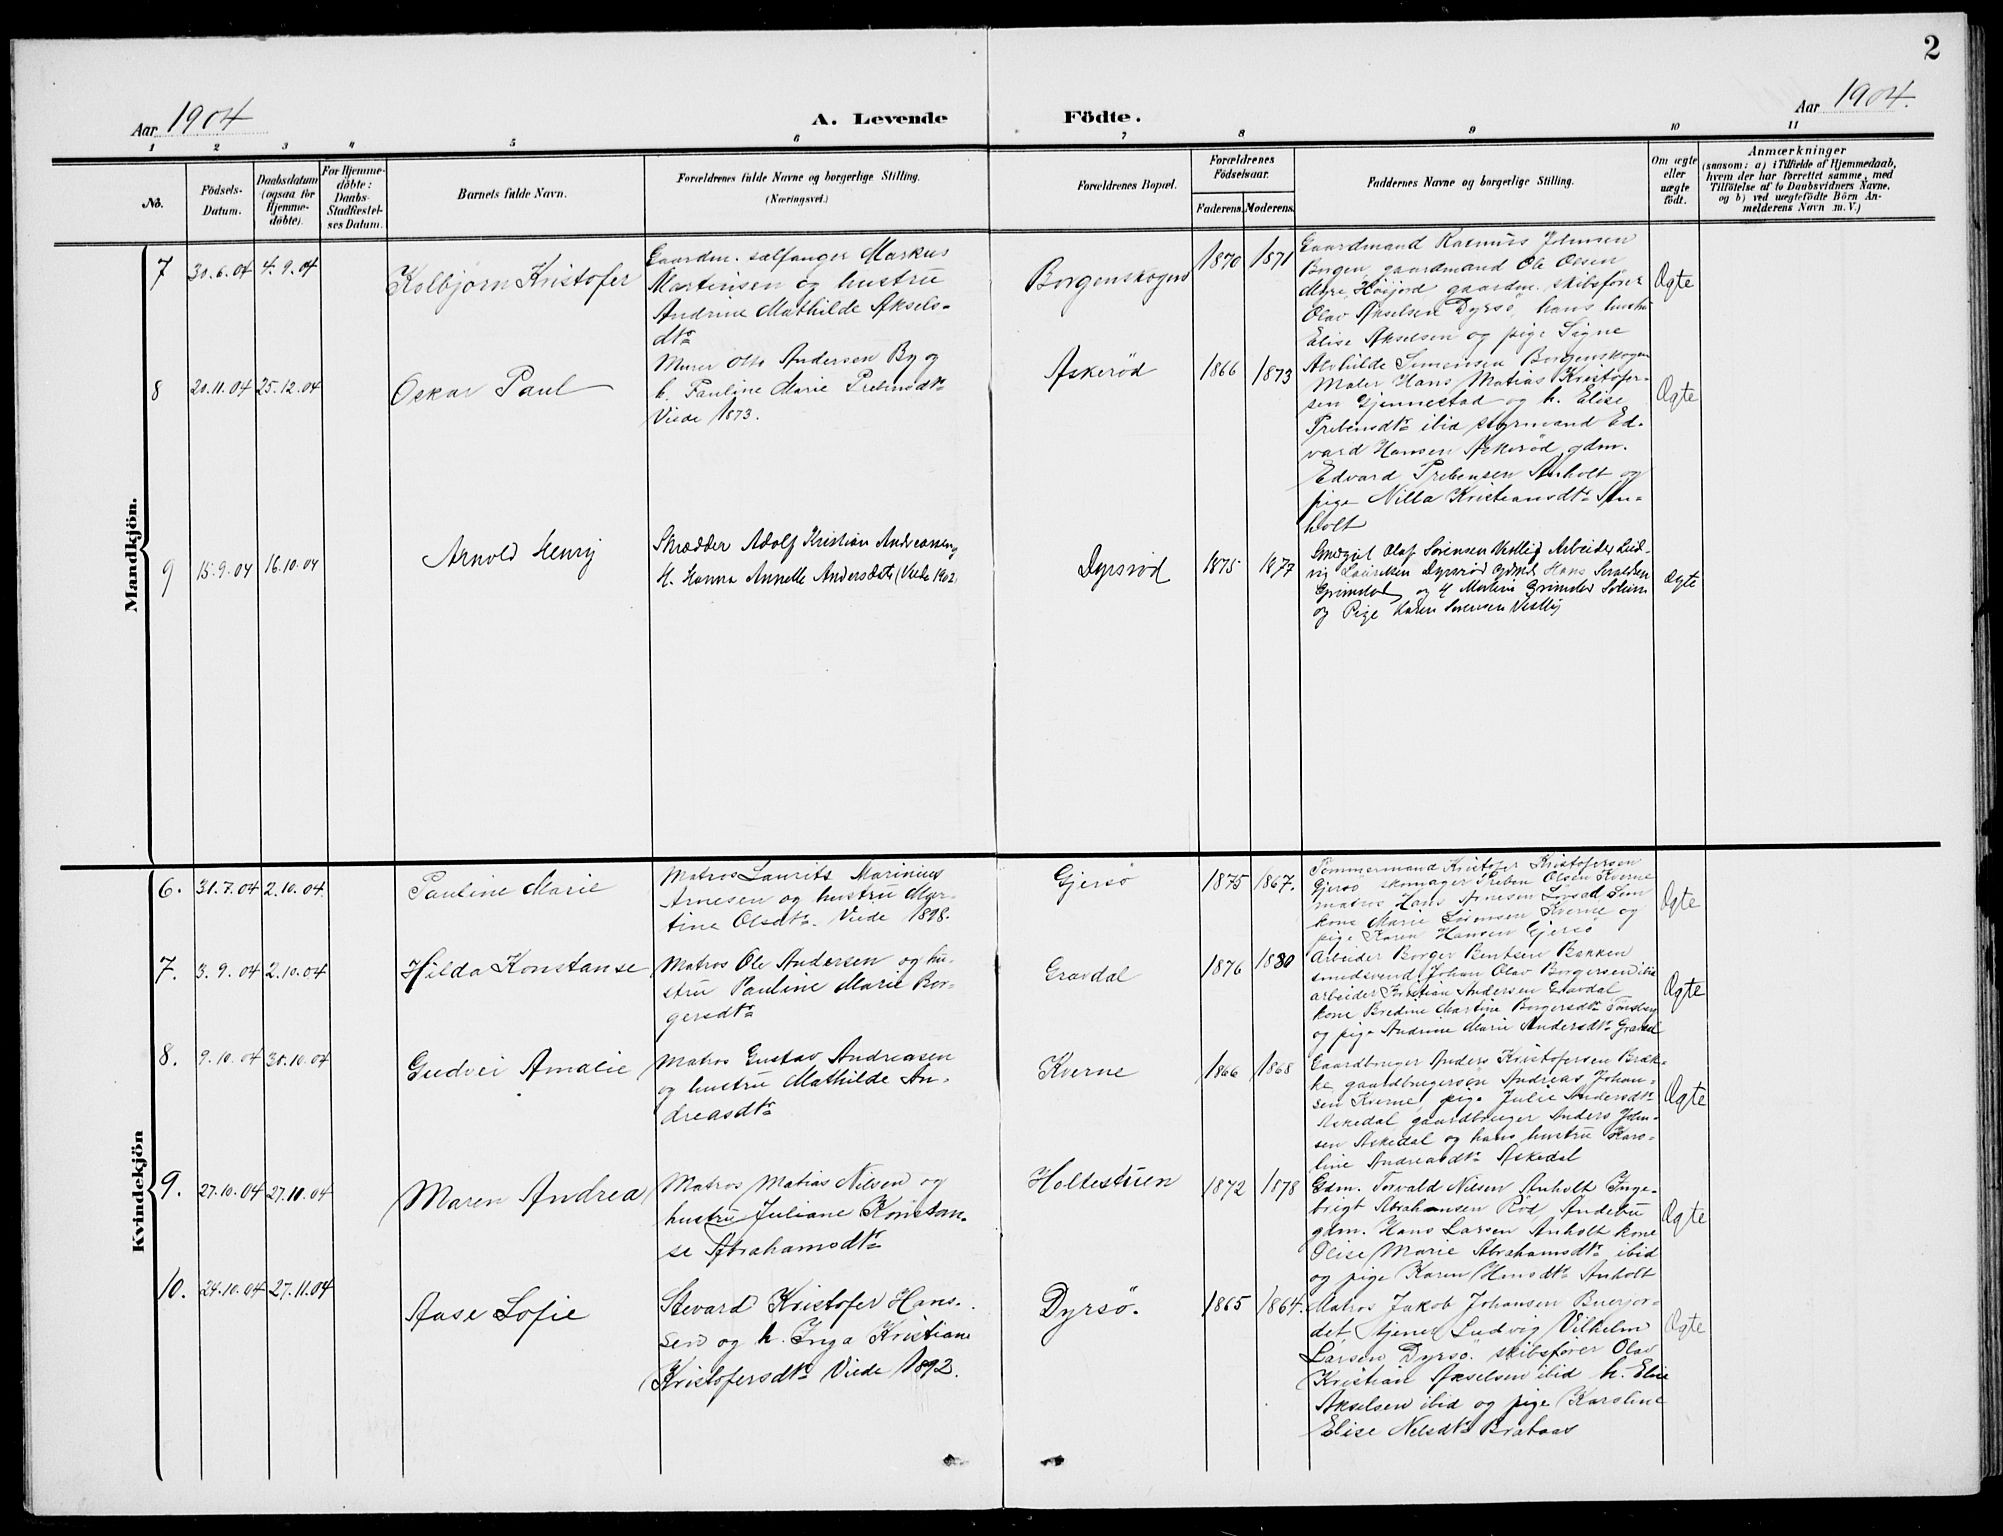 2
Aar 1904
A. Levende Födte.
Aar 1904.
1 2 3 4 5 6 7 8 9 10 11
No.
Födsels-Datum.
Daabsdatum (ogsaa for Hjemme-döbte).
For Hjemme-döbte: Daabs-Stadfæstel-ses Datum.
Barnets fulde Navn.
Forældrenes fulde Navne og borgerlige Stilling.
(Næringsvei.)
Forældrenes Bopæl.
Forældrenes Födselsaar.
Faderens. Moderens.
Faddernes Navne og borgerlige Stilling.
Om ægte eller uægte födt.
Anmærkninger
(saasom: a) i Tilfælde af Hjemmedaab,
hvem der har forrettet samme, med
Tilföielse af to Daabsvidners Navne,
og b) ved uægtefödte Börn An-
melderens Navn m.V.)
Mandkjön.
7 30.6.04 4.9.04 Kolbjörn Kristofer
Gaardm. sælfanger Markus
Martinsen og hustru
Andrine Mathilde Aksels-
dtr
Borgenskogen 1870 1871
Gaardmand Rasmus Johnsen
Borgen, gaardmand Ole Olsen
Myre, Høijord gaardm. skibsfører
Olav Akselsen Dyrsö, hans hustru
Elise Akselsen og pige Signe
Alvhilde Simensen Borgenskogen
Ægte
8 20.11.04 25.12.04 Oskar Paul
Murer Otto Andersen By og
h. Pauline Marie Prebensdtr
Viede 1873.
Askerød 1866 1873
Maler Hans Matias Kristofer-
sen Gjennestad og h. Elise
Prebensdtr ibid styrmand Ed-
vard Hansen Askerød, gdm.
Edvard Prebensen Anholt og
pige Nilla Kristiansdtr An-
holt
Ægte
9 15.9.04 16.10.04 Arnold Henry
Skrædder Adolf Kristian Andreassen og
H. Hanna Annette Andersdtr (Viede 1902
Dyrsrød 1875 1877
Olaf Sørensen Vestby Arbeider Lud-
vig Lauritzen Dyrsrød Hans
Grimstad og H Grimstad
og Pige Karen Sørensen Vestby
Ægte
Kvindekjön
6. 31.7.04 2.10.04 Pauline Marie
Matros Laurits Marinius
Arnesen og hustru Mar-
tine Olsdtr. Viede 1898.
Gjersö 1875 1867.
Tømmermand Kristofer Kristofersen
Gjersö skomager Preben Olsen Kverne
matros Hans Arnesen
kone Marie Sørensen Kverne og
pige Karen Hansen Gjersö
Ægte
7. 3.9.04 2.10.04 Hilda Konstanse
Matros Ole Andersen og hu-
stru Pauline Marie Bor-
gersdtr
Gravdal 1876 1880
Arbeider Borger Bentsen Bakken
smedsvend Johan Olav Borgersen ibid
arbeider Kristian Andersen Gravdal
kone Bredine Martine Borgersdtr Tønsberg
og pige Andrine Marie Andersdtr Gravdal
Ægte
8. 9.10.04 30.10.04 Gudvei Amalie
Matros Gustav Andreasen
og hustru Mathilde An-
dreasdtr
Kverne 1866 1868
Gaardbruger Anders Kristofersen Bræk-
ke, gaardbrugersøn Andreas Johan-
sen Kverne, pige Julie Andersdtr
Askedal, gaardbruger Anders John-
sen Askedal og hans hustru Karo-
line Andreasdtr Askedal
Ægte
9. 27.10.04 27.11.04 Maren Andrea
Matros Matias Nilsen og
hustru Juliane Konstan-
se Abrahamsdtr
Holtestuen 1872 1878
Gdm. Torvald Nilsen Anholt Inge-
brigt Abrahamsen Rød Andebu
gdm. Hans Larsen Anholt kone
Olise Marie Abrahamsdtr ibid
og pige Karen Hansdtr Anholt
Ægte
10. 24.10.04 27.11.04 Aase Sofie
Stevard Kristofer Han-
sen og h. Inga Kristiane
Kristofersdtr Viede 1892.
Dyrsö. 1865 1864.
Matros Jakob Johansen Buerjor-
det, tjener Ludvig Vilhelm
Larsen Dyrsö. skibsfører Olav
Kristian Akselsen ibid h. Elise
Akselsen ibid og pige Karoline
Elise Nilsdtr Braataas
Ægte